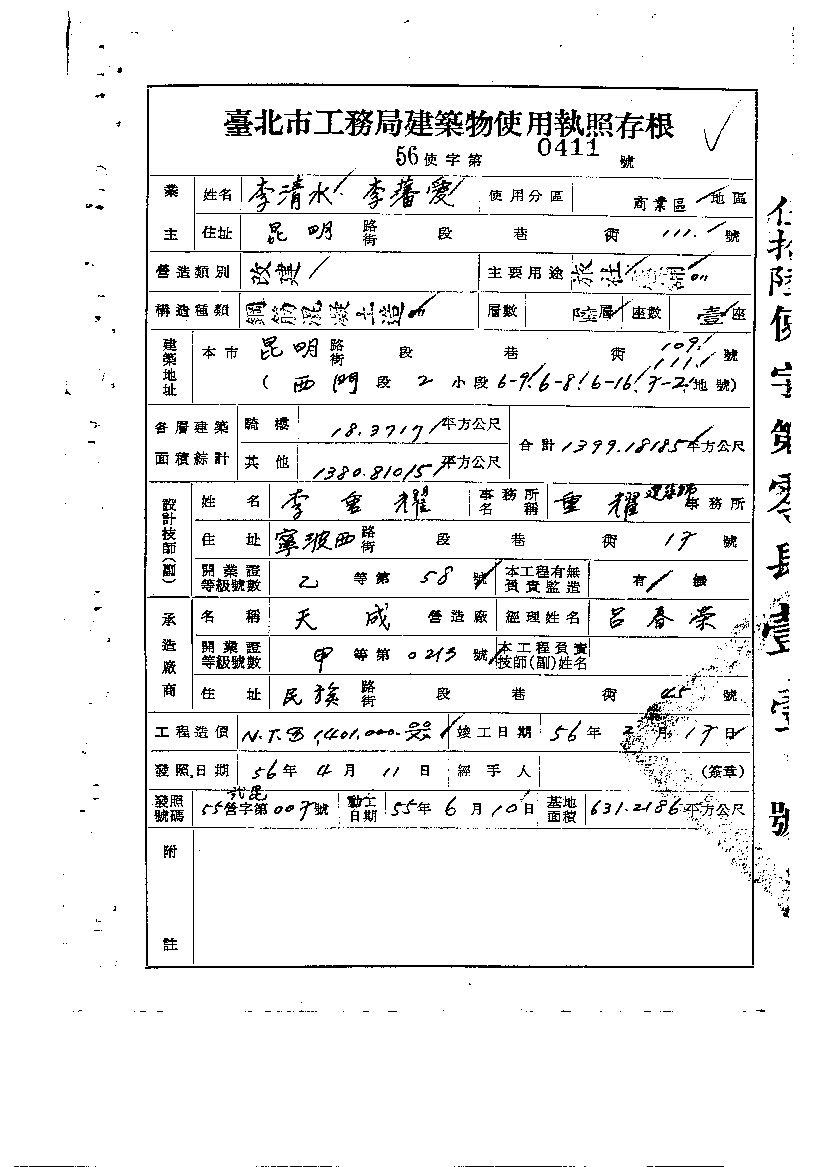 臺北市工務局建築物使用執照存根
56使字第 0411 號
業主 姓名 李清水 李蕃愛 使用分區 商業區 地區
住址 昆明 路街 段 巷 衖 111 號
營造類別 改建 主要用途 旅社
構造種類 鋼筋混凝土造 層數 陸層 座數 壹座
建築地址 本市 昆明 路街 段 巷 衖 109. 111. 號
(西門段 2 小段 6-9. 6-8. 6-16. 地號)
各層建築面積綜計 騎樓 18.3717 平方公尺 合計 1399.18185 平方公尺
其他 1380.81015 平方公尺
設計技師(副) 姓名 李重耀 事務所名稱 重耀建築師事務所
住址 寧波西 路街 段 巷 衖 號
開業證等級號數 乙等第 58 號 本工程有無負責監造 有 無
承造廠商 名稱 天成 營造廠 經理姓名 呂春榮
開業證等級號數 甲等第 0213 號 本工程負責技師(副)姓名
住址 民族 路街 段 巷 衖 45 號
工程造價 N.T.$ 1,401,000.00 竣工日期 56年 月 日
發照日期 56年4月11日 經手人 (簽章)
發照號碼 55營字第 號 動工日期 55年6月10日 基地面積 631.2186 平方公尺
附註
伍拾陸使字第零肆壹壹號